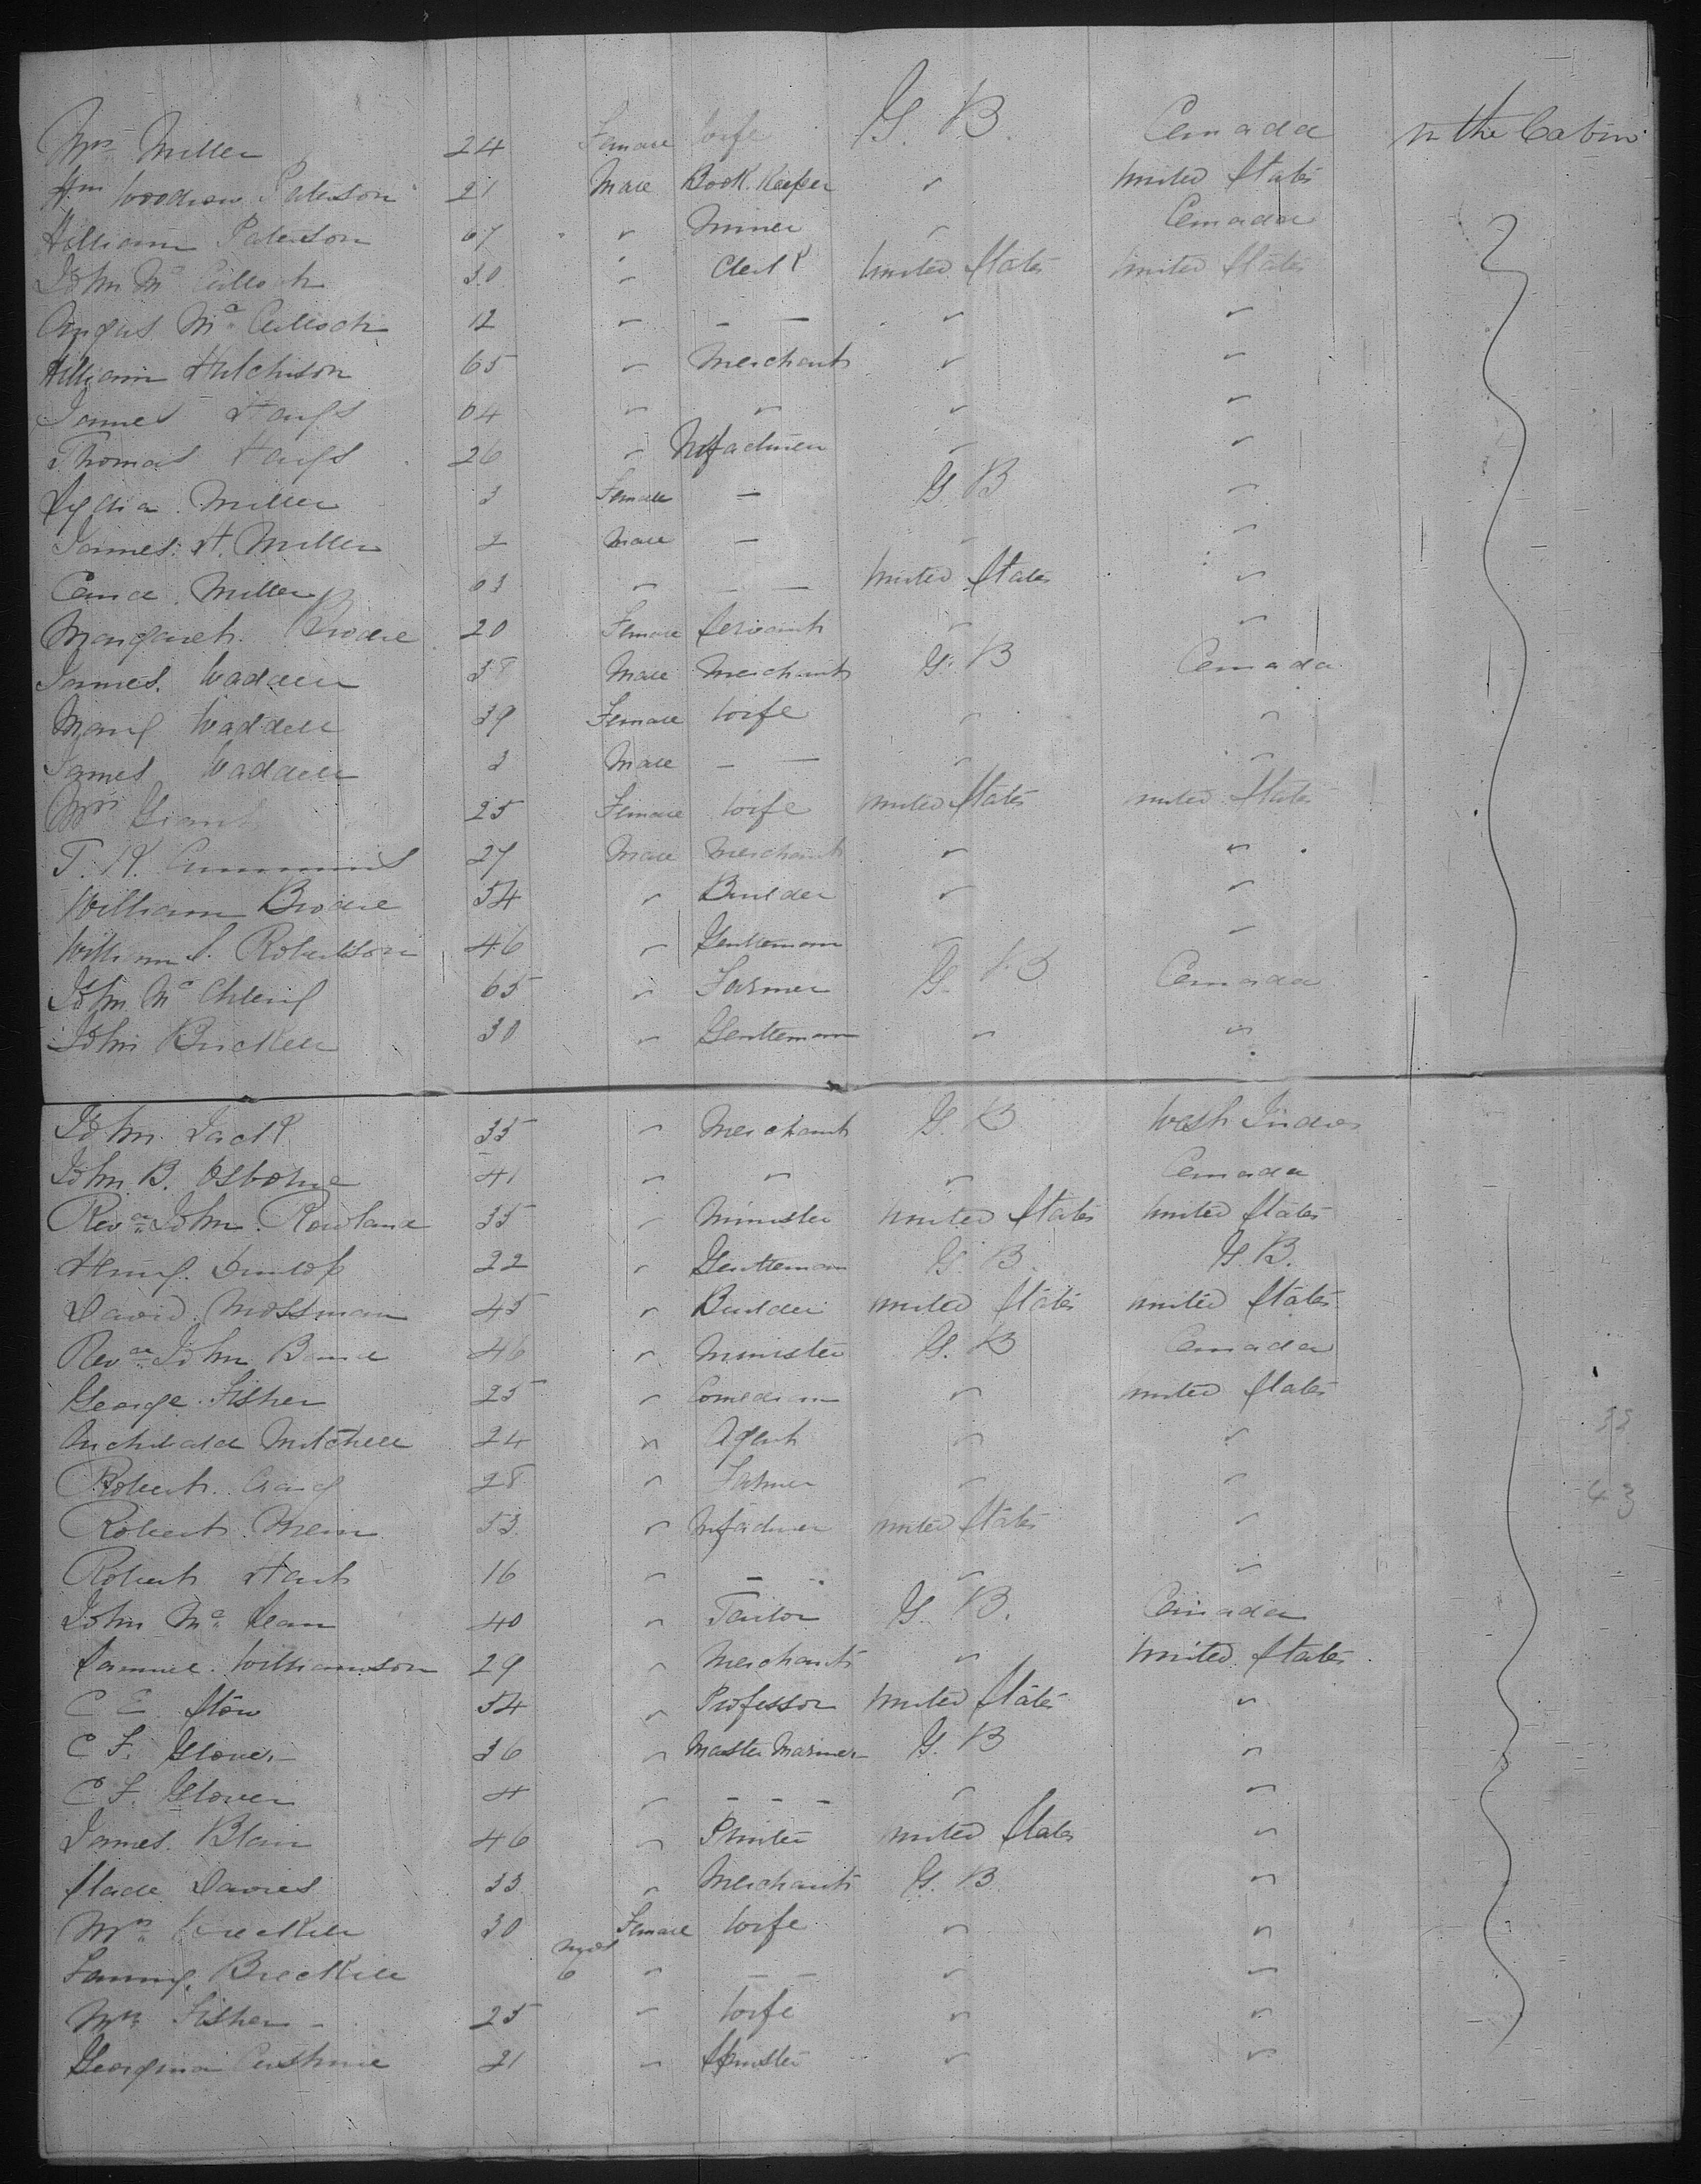 Mrs Miller 24 Female Wife G. B. Canada In the Cabin
Wm Woodrow Paterson 21 Male Book. Keeper " United States
William Paterson " Miner " Canada
John Mc Culloch 30 " Clerk United States United States
Angus Mc Culloch 12 " — — " "
William Hutchison 65 " Merchant " "
James " " " "
Thomas 26 " Mfacturer " "
Lydia Miller 3 Female — G. B "
James. H. Miller 2 Male — " "
Miller " — — United States "
Margaret. Brodie 20 Female Servant " "
James. Waddell 38 Male Merchant G. B Canada
Mary Waddell 39 Female Wife " "
James Waddell 3 Male — — " "
Mrs Grant 25 Female Wife United States United States
T. H. Cummins 27 Male Merchant " "
William Brodie 54 " Builder " "
William S. Robertson 46 " Gentleman " "
John Mc 65 " Farmer G. B Canada
John Breckell 30 " Gentleman " "
John. Jack 35 " Merchant G. B West Indies
John. B. Osborne 41 " " " Canada
Revd John. Rowland 35 " Minister United States United States
Henry. Dunlop 22 " Gentleman G. B. G. B.
David. Mossman 45 " Builder United States United States
Revd John 46 " Minister G. B Canada
George. Fisher 25 " Comedian " United States
Archibald Mitchell 24 " Agent " "
Robert. Craig 28 " Farmer " "
Robert. Mein 53 " Mfacturer United States "
Robert 16 " — " "
John Mc Lean 40 " Tailor G. B. Canada
Samuel. Williamson 29 " Merchant " United States
C E. Stow 54 " Professor United States "
C F. Glover 36 " Master Mariner G. B "
C. F. Glover 4 " — — — " "
James. Blair 46 " Printer United States "
Slade Davies 33 " Merchant G. B. "
Mrs Breckell 30 Female Wife " "
Fanny. Breckell 6 " — — " "
Mrs Fisher 25 " Wife " "
Georgina 21 " Spinster " "